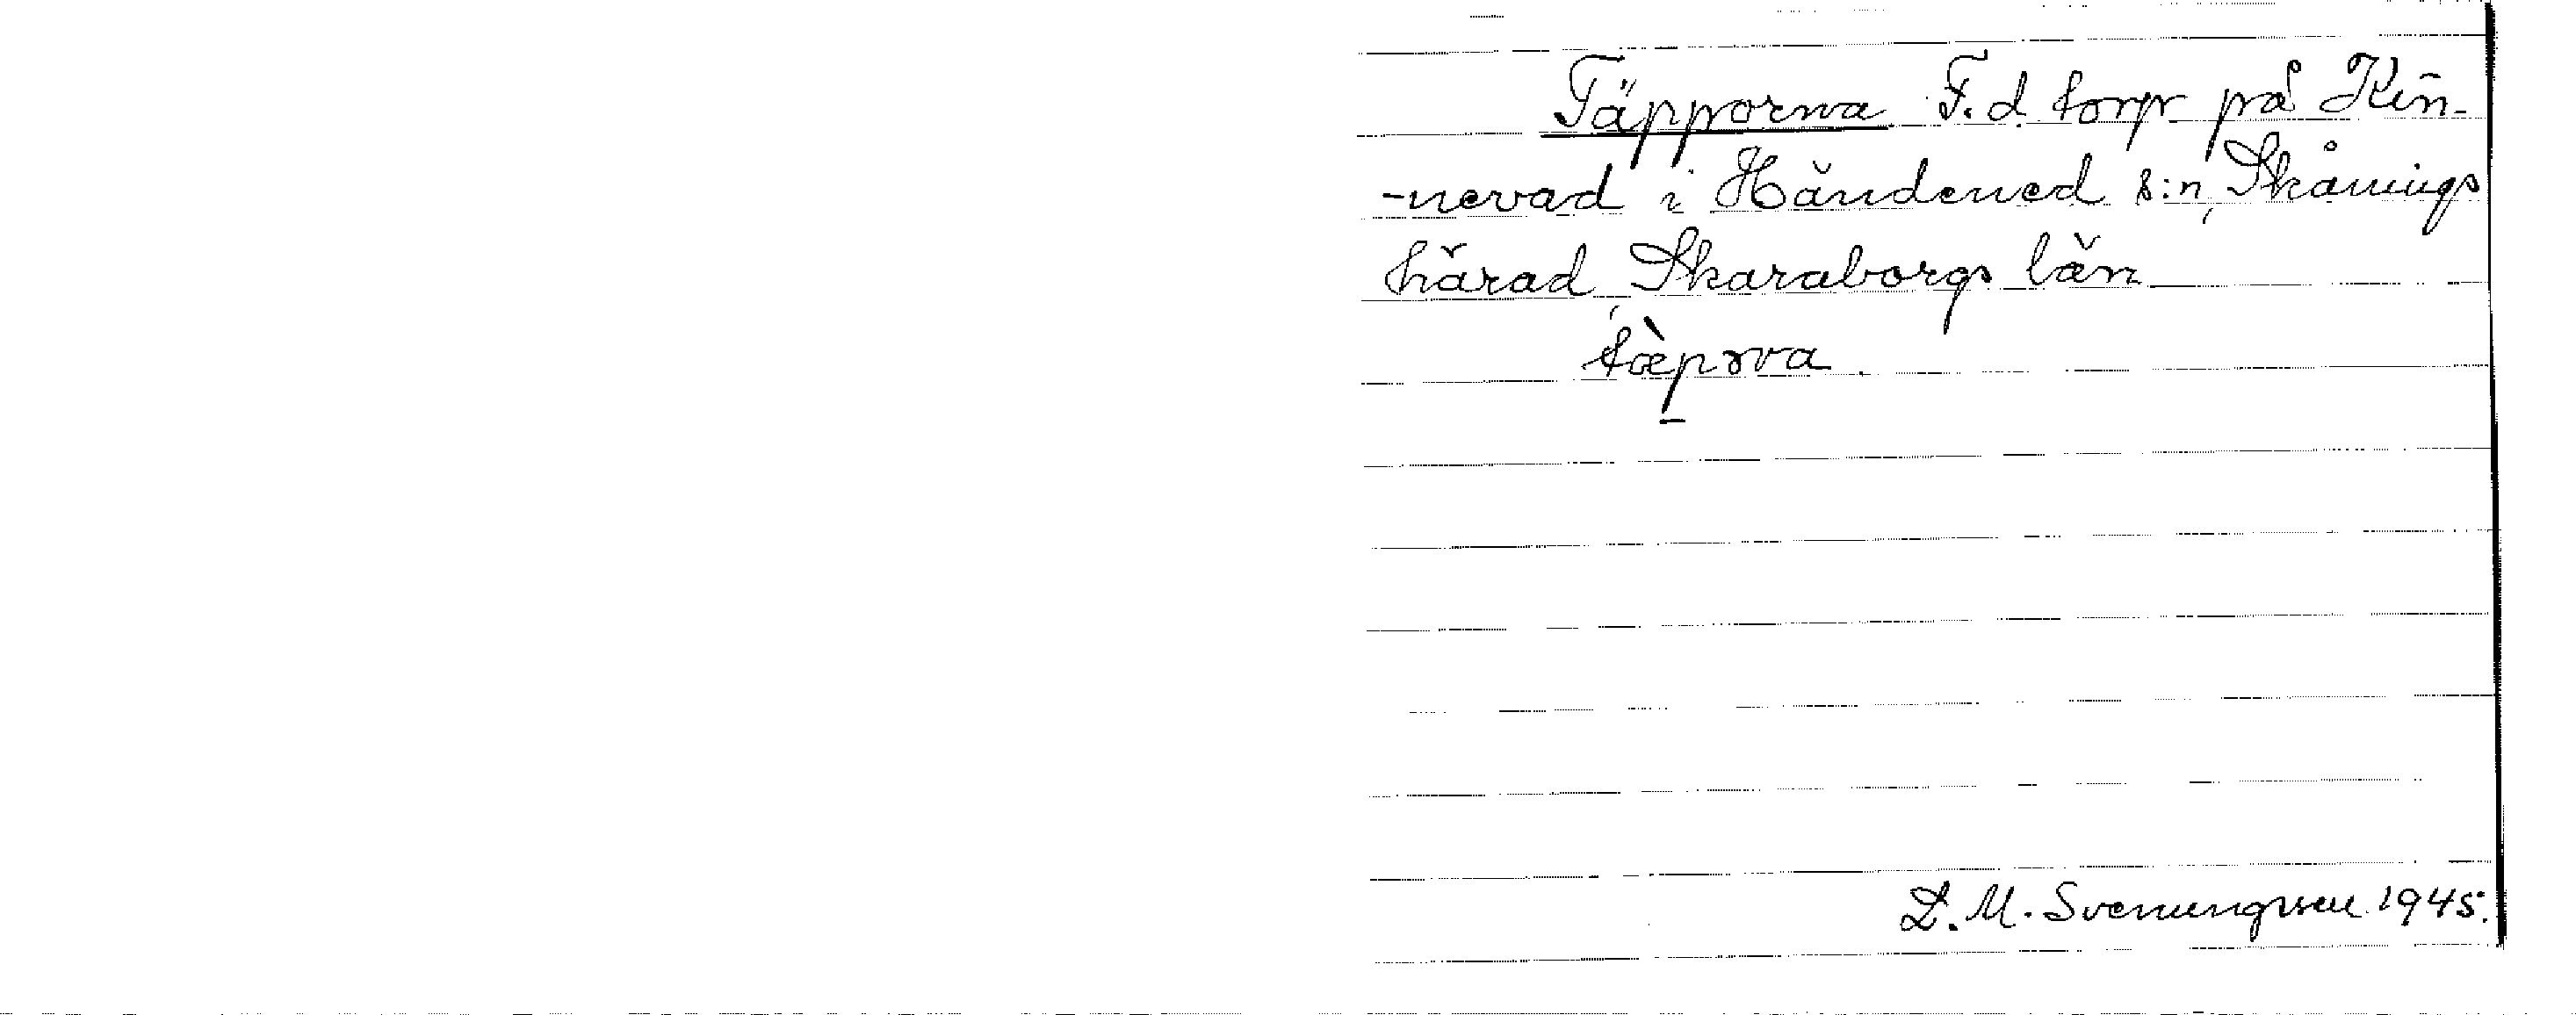 Täpporna F. d. torp på Kin-
-nevad i Händened s:n, Skånings
härad, Skaraborgs län
tæ̀prva.
D. M. Svenungsson 1945.